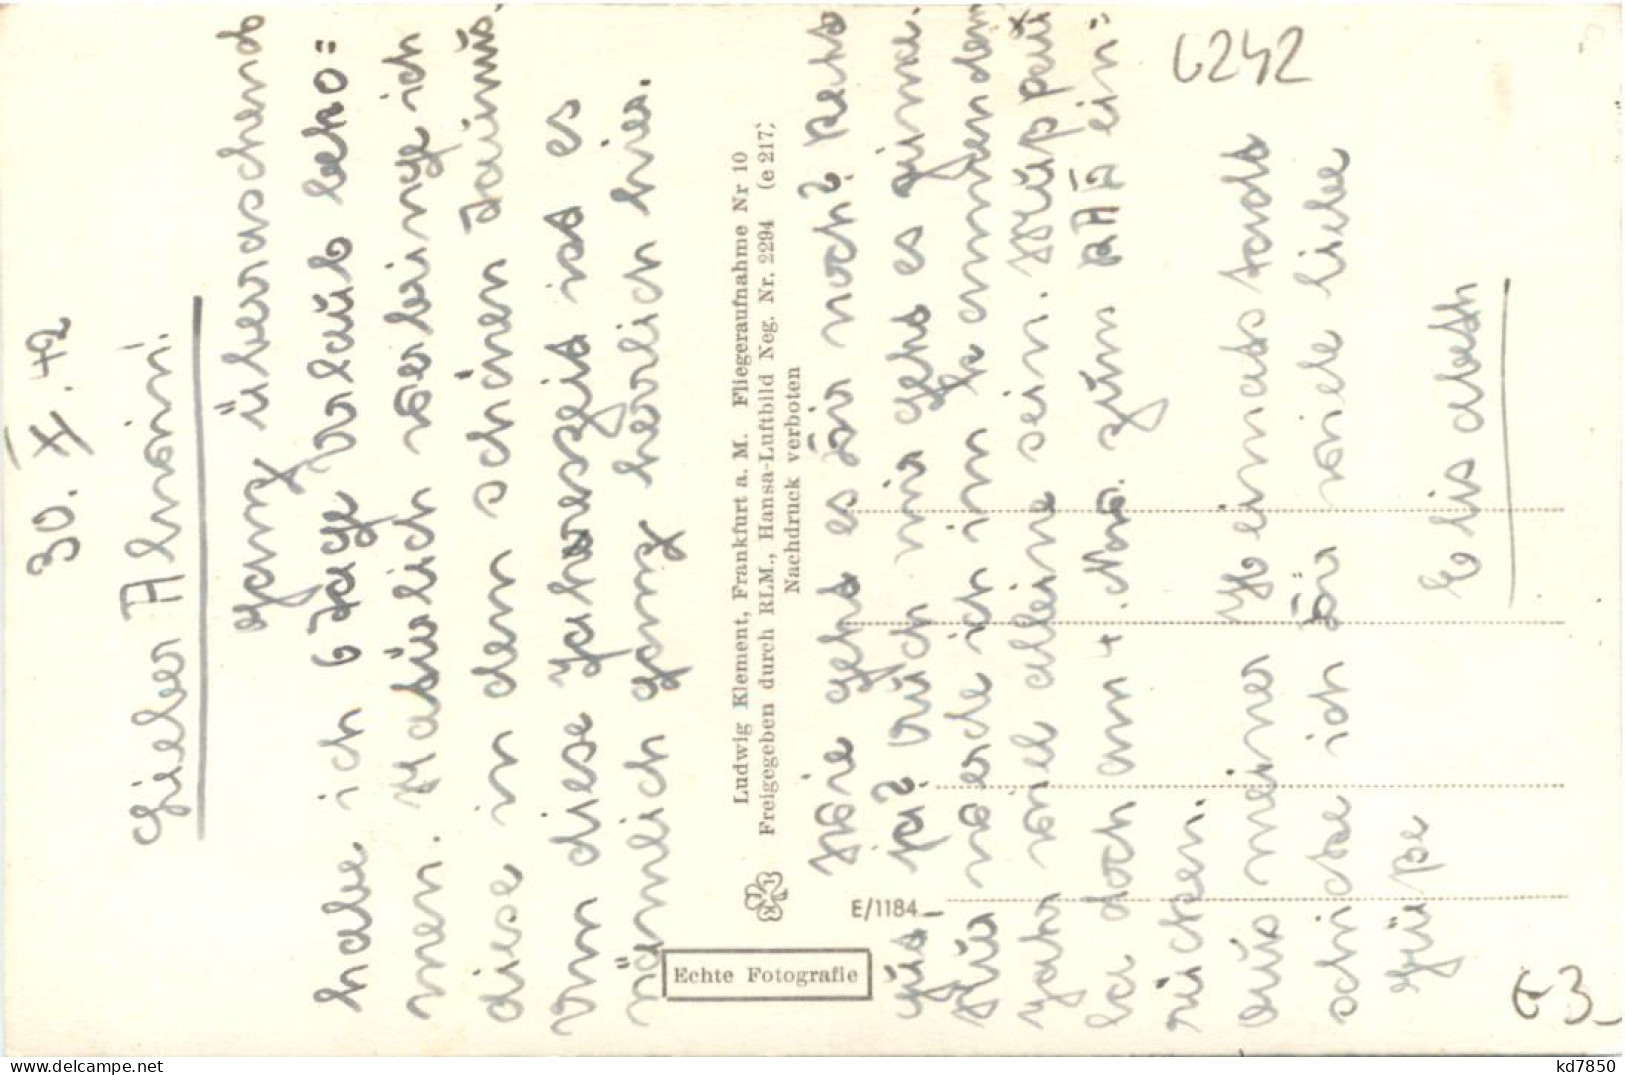 30. X. 42
Lieber Alwin!
Ganz überraschend
habe ich 6 Tage Urlaub beko=
men. Natürlich verbringe ich
diese in dem schönen Taunus.
Um diese Jahreszeit ist es
nämlich ganz herrlich hier.
Ludwig Klement, Frankfurt a. M. Fliegeraufnahme Nr 10
Freigegeben durch RLM., Hansa-Luftbild Neg. Nr. 2294 (e 217)
Nachdruck verboten
Wie geht es Dir noch? Recht
gut ja? Auch mir geht es prima.
Nur werde ich im kommenden
Jahr viel alleine sein.
da doch am + Nov. zum RAD ein=
rücken.
Aus meiner Heimatstadt
schicke ich Dir viele liebe
Grüße
Elisabeth
E/1184
Echte Fotografie
6242
63
kd7850